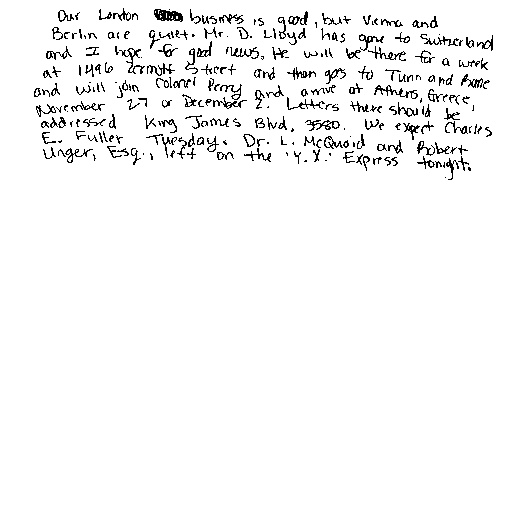 Our London business is good, but Vienna and
Berlin are quiet. Mr. D. Lloyd has gone to Switzerland
and I hope for good news. He will be there for a week
at 1496 Zermott Street and then goes to Turin and Rome
and will join Colonel Perry and arrive at Athens, Greece,
November 27 or December 2. Letters there should be
addressed King James Blvd, 3580. We expect Charles
E. Fuller Tuesday. Dr. L. McQuaid and Robert
Unger, Esq., left on the 'Y.X.' Express tonight.